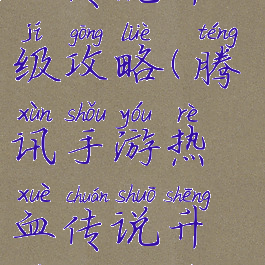 jí gōng lüè téng
级攻略(腾
xùn shǒu yóu rè
讯手游热
xuè chuán shuō shēng
血传说升